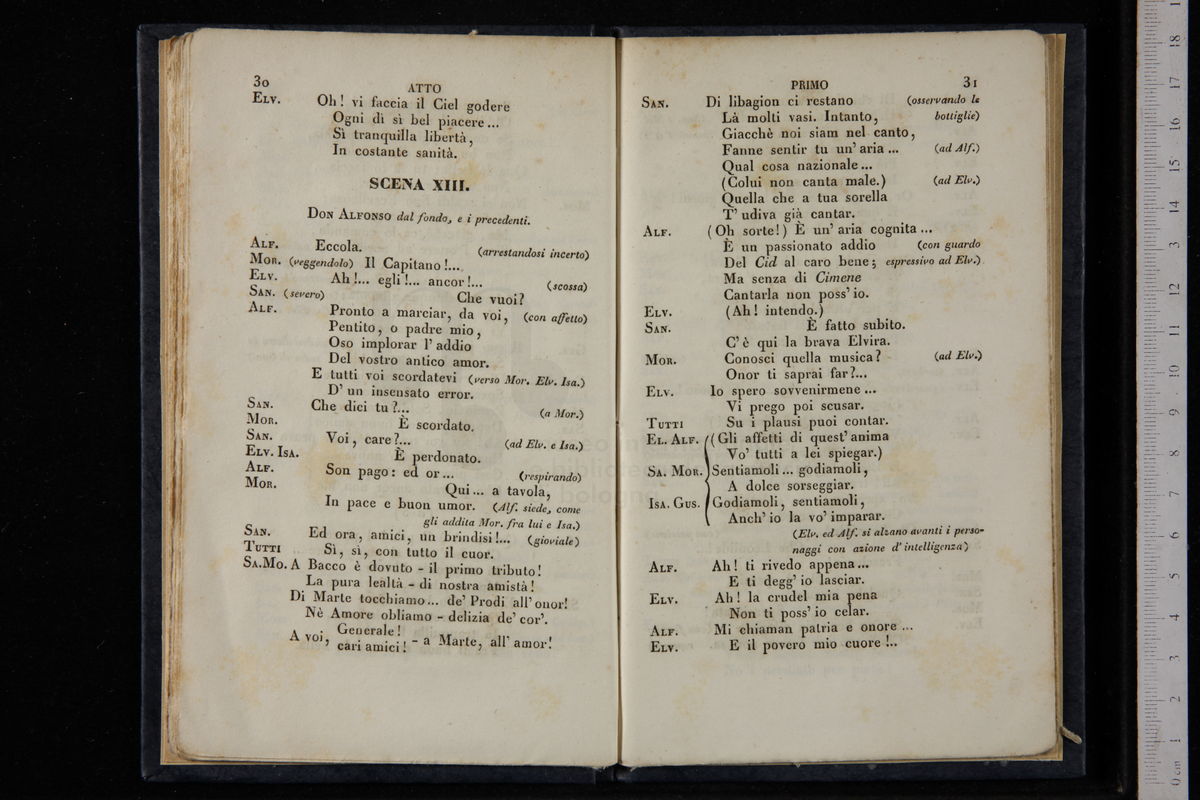 30
ATTO
ELV. Oh! vi faccia il Ciel godere
Ogni dì sì bel piacere...
Sì tranquilla libertà,
In costante sanità.
SCENA XIII.
DON ALFONSO dal fondo, e i precedenti.
ALF. Eccola. (arrestandosi incerto)
MOR. (veggendolo) Il Capitano!...
ELV. Ah!... egli!... ancor!... (scossa)
SAN. (severo) Che vuoi?
ALF. Pronto a marciar, da voi, (con affetto)
Pentito, o padre mio,
Oso implorar l' addio
Del vostro antico amor.
E tutti voi scordatevi (verso Mor. Elv. Isa.)
D' un insensato error.
SAN. Che dici tu?... (a Mor.)
MOR. È scordato.
SAN. Voi, care?... (ad Elv. e Isa.)
ELV. ISA. È perdonato.
ALF. Son pago: ed or... (respirando)
MOR. Qui... a tavola,
In pace e buon umor. (Alf. siede, come
gli addita Mor. fra lui e Isa.)
SAN. Ed ora, amici, un brindisi!... (gioviale)
TUTTI Sì, sì, con tutto il cuor.
SA.MO. A Bacco è dovuto - il primo tributo!
La pura lealtà - di nostra amistà!
Di Marte tocchiamo... de' Prodi all' onor!
Nè Amore obliamo - delizia de' cor'.
A voi, Generale! - a Marte, all' amor!
cari amici!
PRIMO
31
SAN. Di libagion ci restano (osservando le
Là molti vasi. Intanto, bottiglie)
Giacchè noi siam nel canto,
Fanne sentir tu un' aria... (ad Alf.)
Qual cosa nazionale...
(Colui non canta male.) (ad Elv.)
Quella che a tua sorella
T' udiva già cantar.
ALF. (Oh sorte!) È un' aria cognita...
È un passionato addio (con guardo
Del Cid al caro bene; espressivo ad Elv.)
Ma senza di Cimene
Cantarla non poss' io.
ELV. (Ah! intendo.)
SAN. È fatto subito.
C' è qui la brava Elvira.
MOR. Conosci quella musica? (ad Elv.)
Onor ti saprai far?...
ELV. Io spero sovvenirmene...
Vi prego poi scusar.
TUTTI Su i plausi puoi contar.
EL. ALF. (Gli affetti di quest' anima
Vo' tutti a lei spiegar.)
SA. MOR. Sentiamoli... godiamoli,
A dolce sorseggiar.
ISA. GUS. Godiamoli, sentiamoli,
Anch' io la vo' imparar.
(Elv. ed Alf. si alzano avanti i perso-
naggi con azione d' intelligenza)
ALF. Ah! ti rivedo appena...
E ti degg' io lasciar.
ELV. Ah! la crudel mia pena
Non ti poss' io celar.
ALF. Mi chiaman patria e onore...
ELV. E il povero mio cuore!..